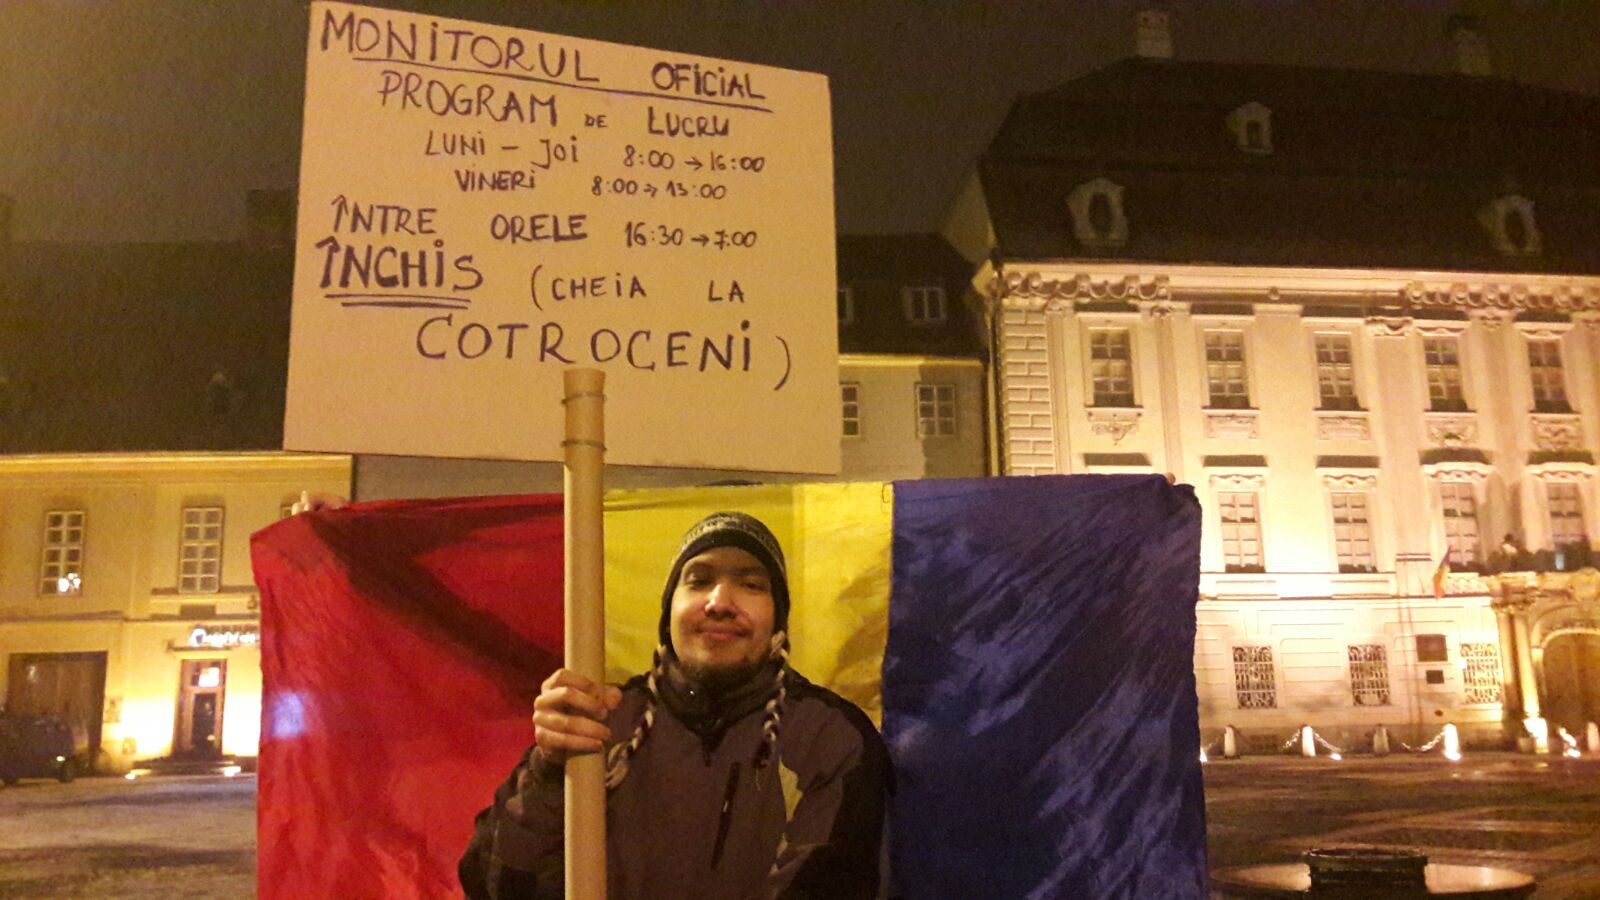 MONITORUL OFICIAL
PROGRAM DE LUCRU
LUNI - JOI 8:00 → 16:00
VINERI 8:00 → 13:00
ÎNTRE ORELE 16:30 → 7:00
ÎNCHIS (CHEIA LA
COTROCENI)